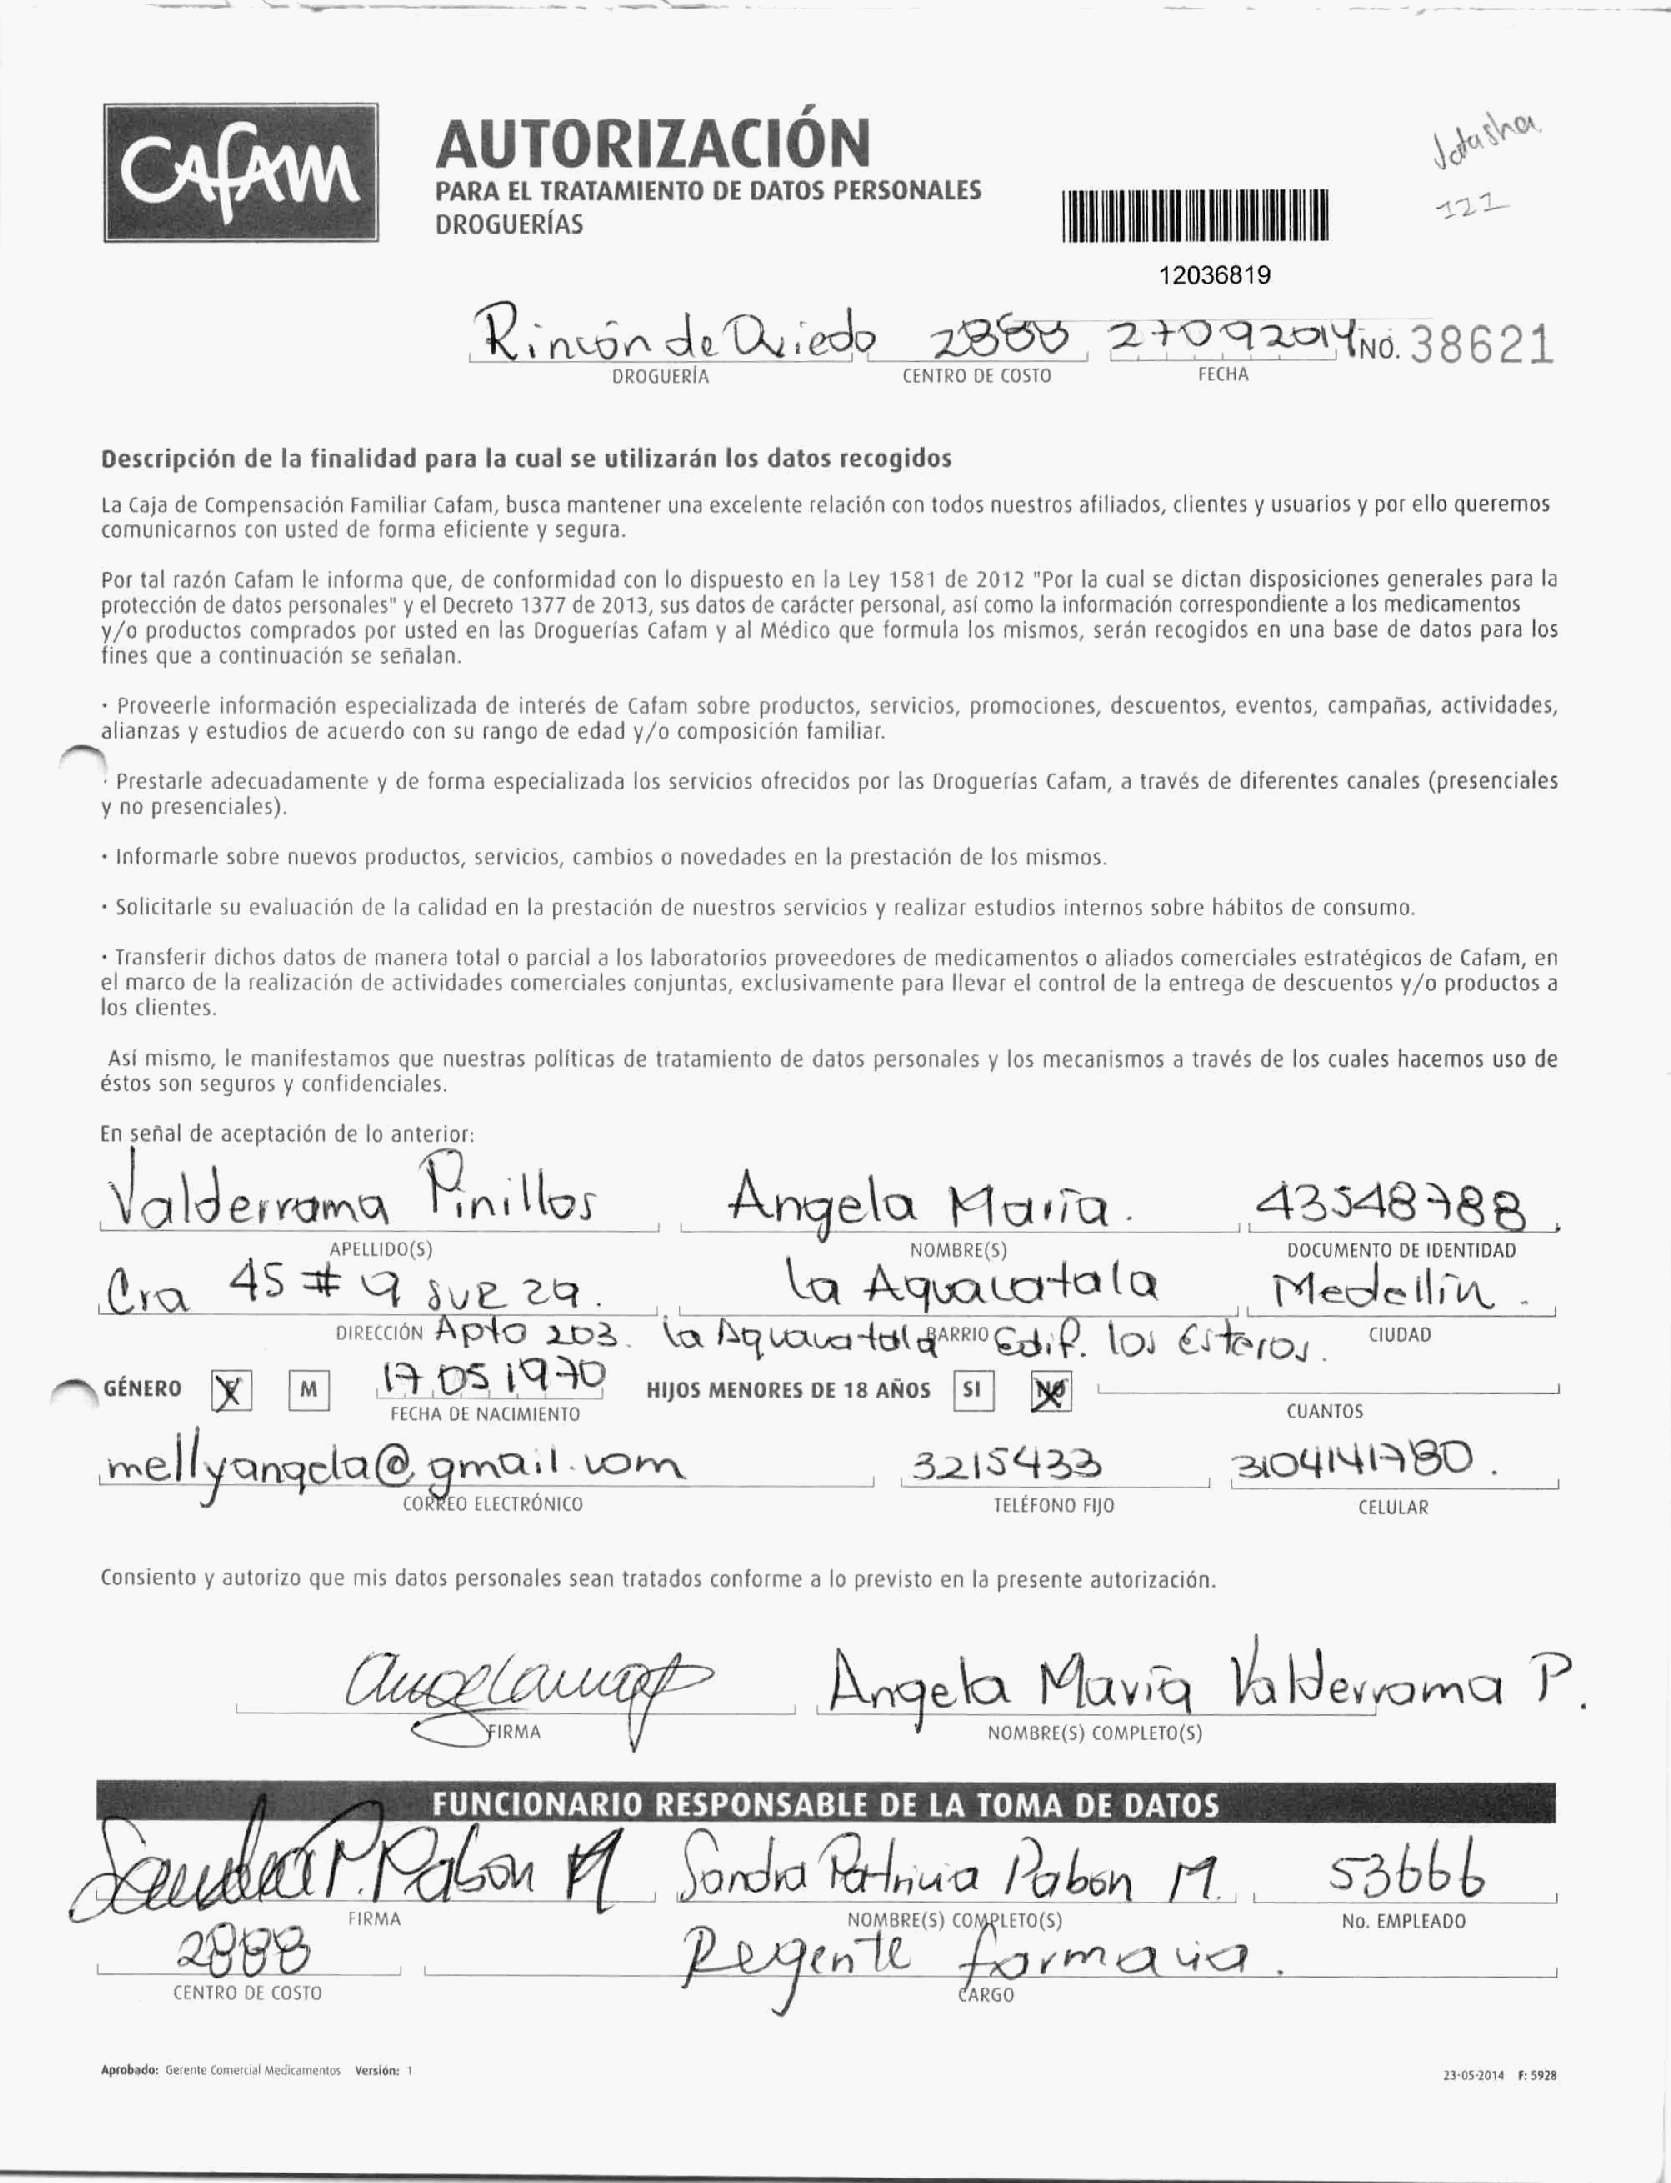 Cafam
AUTORIZACIÓN
PARA EL TRATAMIENTO DE DATOS PERSONALES
DROGUERÍAS
121
12036819
Rincón de Oviedo 2888 27092014 NO. 38621
DROGUERÍA CENTRO DE COSTO FECHA
Descripción de la finalidad para la cual se utilizarán los datos recogidos
La Caja de Compensación Familiar Cafam, busca mantener una excelente relación con todos nuestros afiliados, clientes y usuarios y por ello queremos
comunicarnos con usted de forma eficiente y segura.
Por tal razón Cafam le informa que, de conformidad con lo dispuesto en la Ley 1581 de 2012 "Por la cual se dictan disposiciones generales para la
protección de datos personales" y el Decreto 1377 de 2013, sus datos de carácter personal, así como la información correspondiente a los medicamentos
y/o productos comprados por usted en las Droguerías Cafam y al Médico que formula los mismos, serán recogidos en una base de datos para los
fines que a continuación se señalan.
· Proveerle información especializada de interés de Cafam sobre productos, servicios, promociones, descuentos, eventos, campañas, actividades,
alianzas y estudios de acuerdo con su rango de edad y/o composición familiar.
· Prestarle adecuadamente y de forma especializada los servicios ofrecidos por las Droguerías Cafam, a través de diferentes canales (presenciales
y no presenciales).
· Informarle sobre nuevos productos, servicios, cambios o novedades en la prestación de los mismos.
· Solicitarle su evaluación de la calidad en la prestación de nuestros servicios y realizar estudios internos sobre hábitos de consumo.
· Transferir dichos datos de manera total o parcial a los laboratorios proveedores de medicamentos o aliados comerciales estratégicos de Cafam, en
el marco de la realización de actividades comerciales conjuntas, exclusivamente para llevar el control de la entrega de descuentos y/o productos a
los clientes.
Así mismo, le manifestamos que nuestras políticas de tratamiento de datos personales y los mecanismos a través de los cuales hacemos uso de
éstos son seguros y confidenciales.
En señal de aceptación de lo anterior:
Valderrama Pinillos Angela María. 43548788
APELLIDO(S) NOMBRE(S) DOCUMENTO DE IDENTIDAD
Cra 45 # 9 sur 29. La Aguacatala Medellín.
DIRECCIÓN Apto 203. La Aguacatala BARRIO Edif. los Esteros. CIUDAD
GÉNERO X M 17 05 1970 HIJOS MENORES DE 18 AÑOS SI NO
FECHA DE NACIMIENTO CUANTOS
mellyangela@gmail.com 3215433 3104141780.
CORREO ELECTRÓNICO TELÉFONO FIJO CELULAR
Consiento y autorizo que mis datos personales sean tratados conforme a lo previsto en la presente autorización.
Angela María Valderrama P.
FIRMA NOMBRE(S) COMPLETO(S)
FUNCIONARIO RESPONSABLE DE LA TOMA DE DATOS
Sandra P. Pabon M Sandra Patricia Pabon M. 53666
FIRMA NOMBRE(S) COMPLETO(S) No. EMPLEADO
2888 Regente farmacia.
CENTRO DE COSTO CARGO
Aprobado: Gerente Comercial Medicamentos Versión: 1 23-05-2014 F: 5928